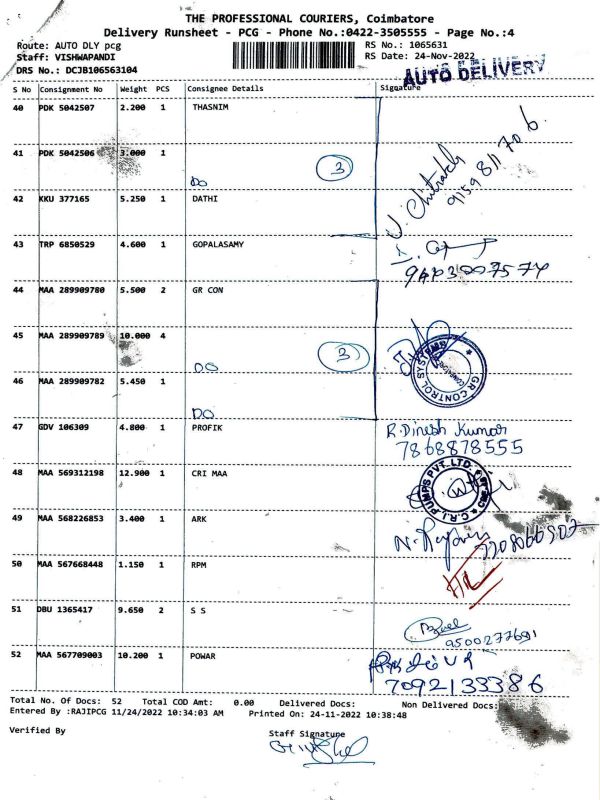 THE PROFESSIONAL COURIERS, Coimbatore
Delivery Runsheet - PCG - Phone No.:0422-3505555 - Page No.:4
Route: AUTO DLY pcg RS No.: 1065631
Staff: VISHWAPANDI RS Date: 24-Nov-2022
DRS No.: DCJB106563104 AUTO DELIVERY
S No Consignment No Weight PCS Consignee Details Signature
40 PDK 5042507 2.200 1 THASNIM
41 PDK 5042506 3.000 1
DO 3
U. Chitralek
9159811706
42 KKU 377165 5.250 1 DATHI
43 TRP 6850529 4.600 1 GOPALASAMY
44 MAA 289909780 5.500 2 GR CON
45 MAA 289909789 10.000 4
DO 3
GR CONTROL SYSTEMS
COIMBATORE
46 MAA 289909782 5.450 1
DO
47 GDV 106309 4.800 1 PROFIK R.Dinesh Kumar
7868878555
48 MAA 569312198 12.900 1 CRI MAA
C.R.I. PUMPS PVT. LTD.
49 MAA 568226853 3.400 1 ARK
50 MAA 567668448 1.150 1 RPM
51 DBU 1365417 9.650 2 S S
9500277691
52 MAA 567709003 10.200 1 POWAR
7092133386
Total No. Of Docs: 52 Total COD Amt: 0.00 Delivered Docs: Non Delivered Docs:
Entered By :RAJIPCG 11/24/2022 10:34:03 AM Printed On: 24-11-2022 10:38:48
Verified By Staff Signature